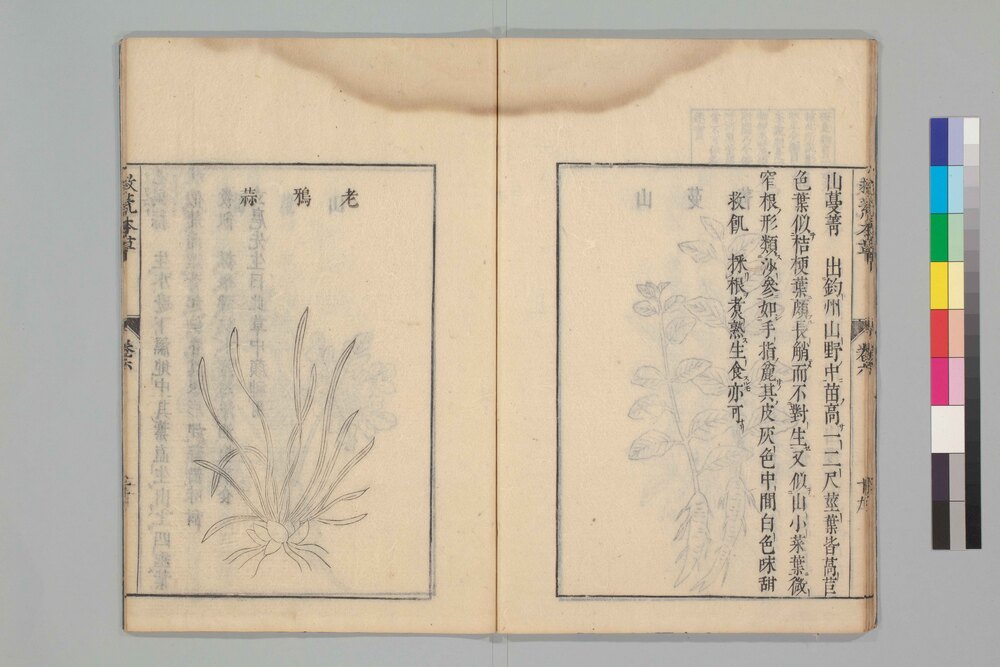 救荒本草
卷六
山蔓菁 出鈞州山野中苗高一二尺莖葉皆萵苣
色葉似桔梗葉頗長艄而不對生又似山小菜葉微
窄根形類沙參如手指麄其皮灰色中間白色味甜
救飢 採根煮熟生食亦可
老鴉蒜
救荒本草
卷六